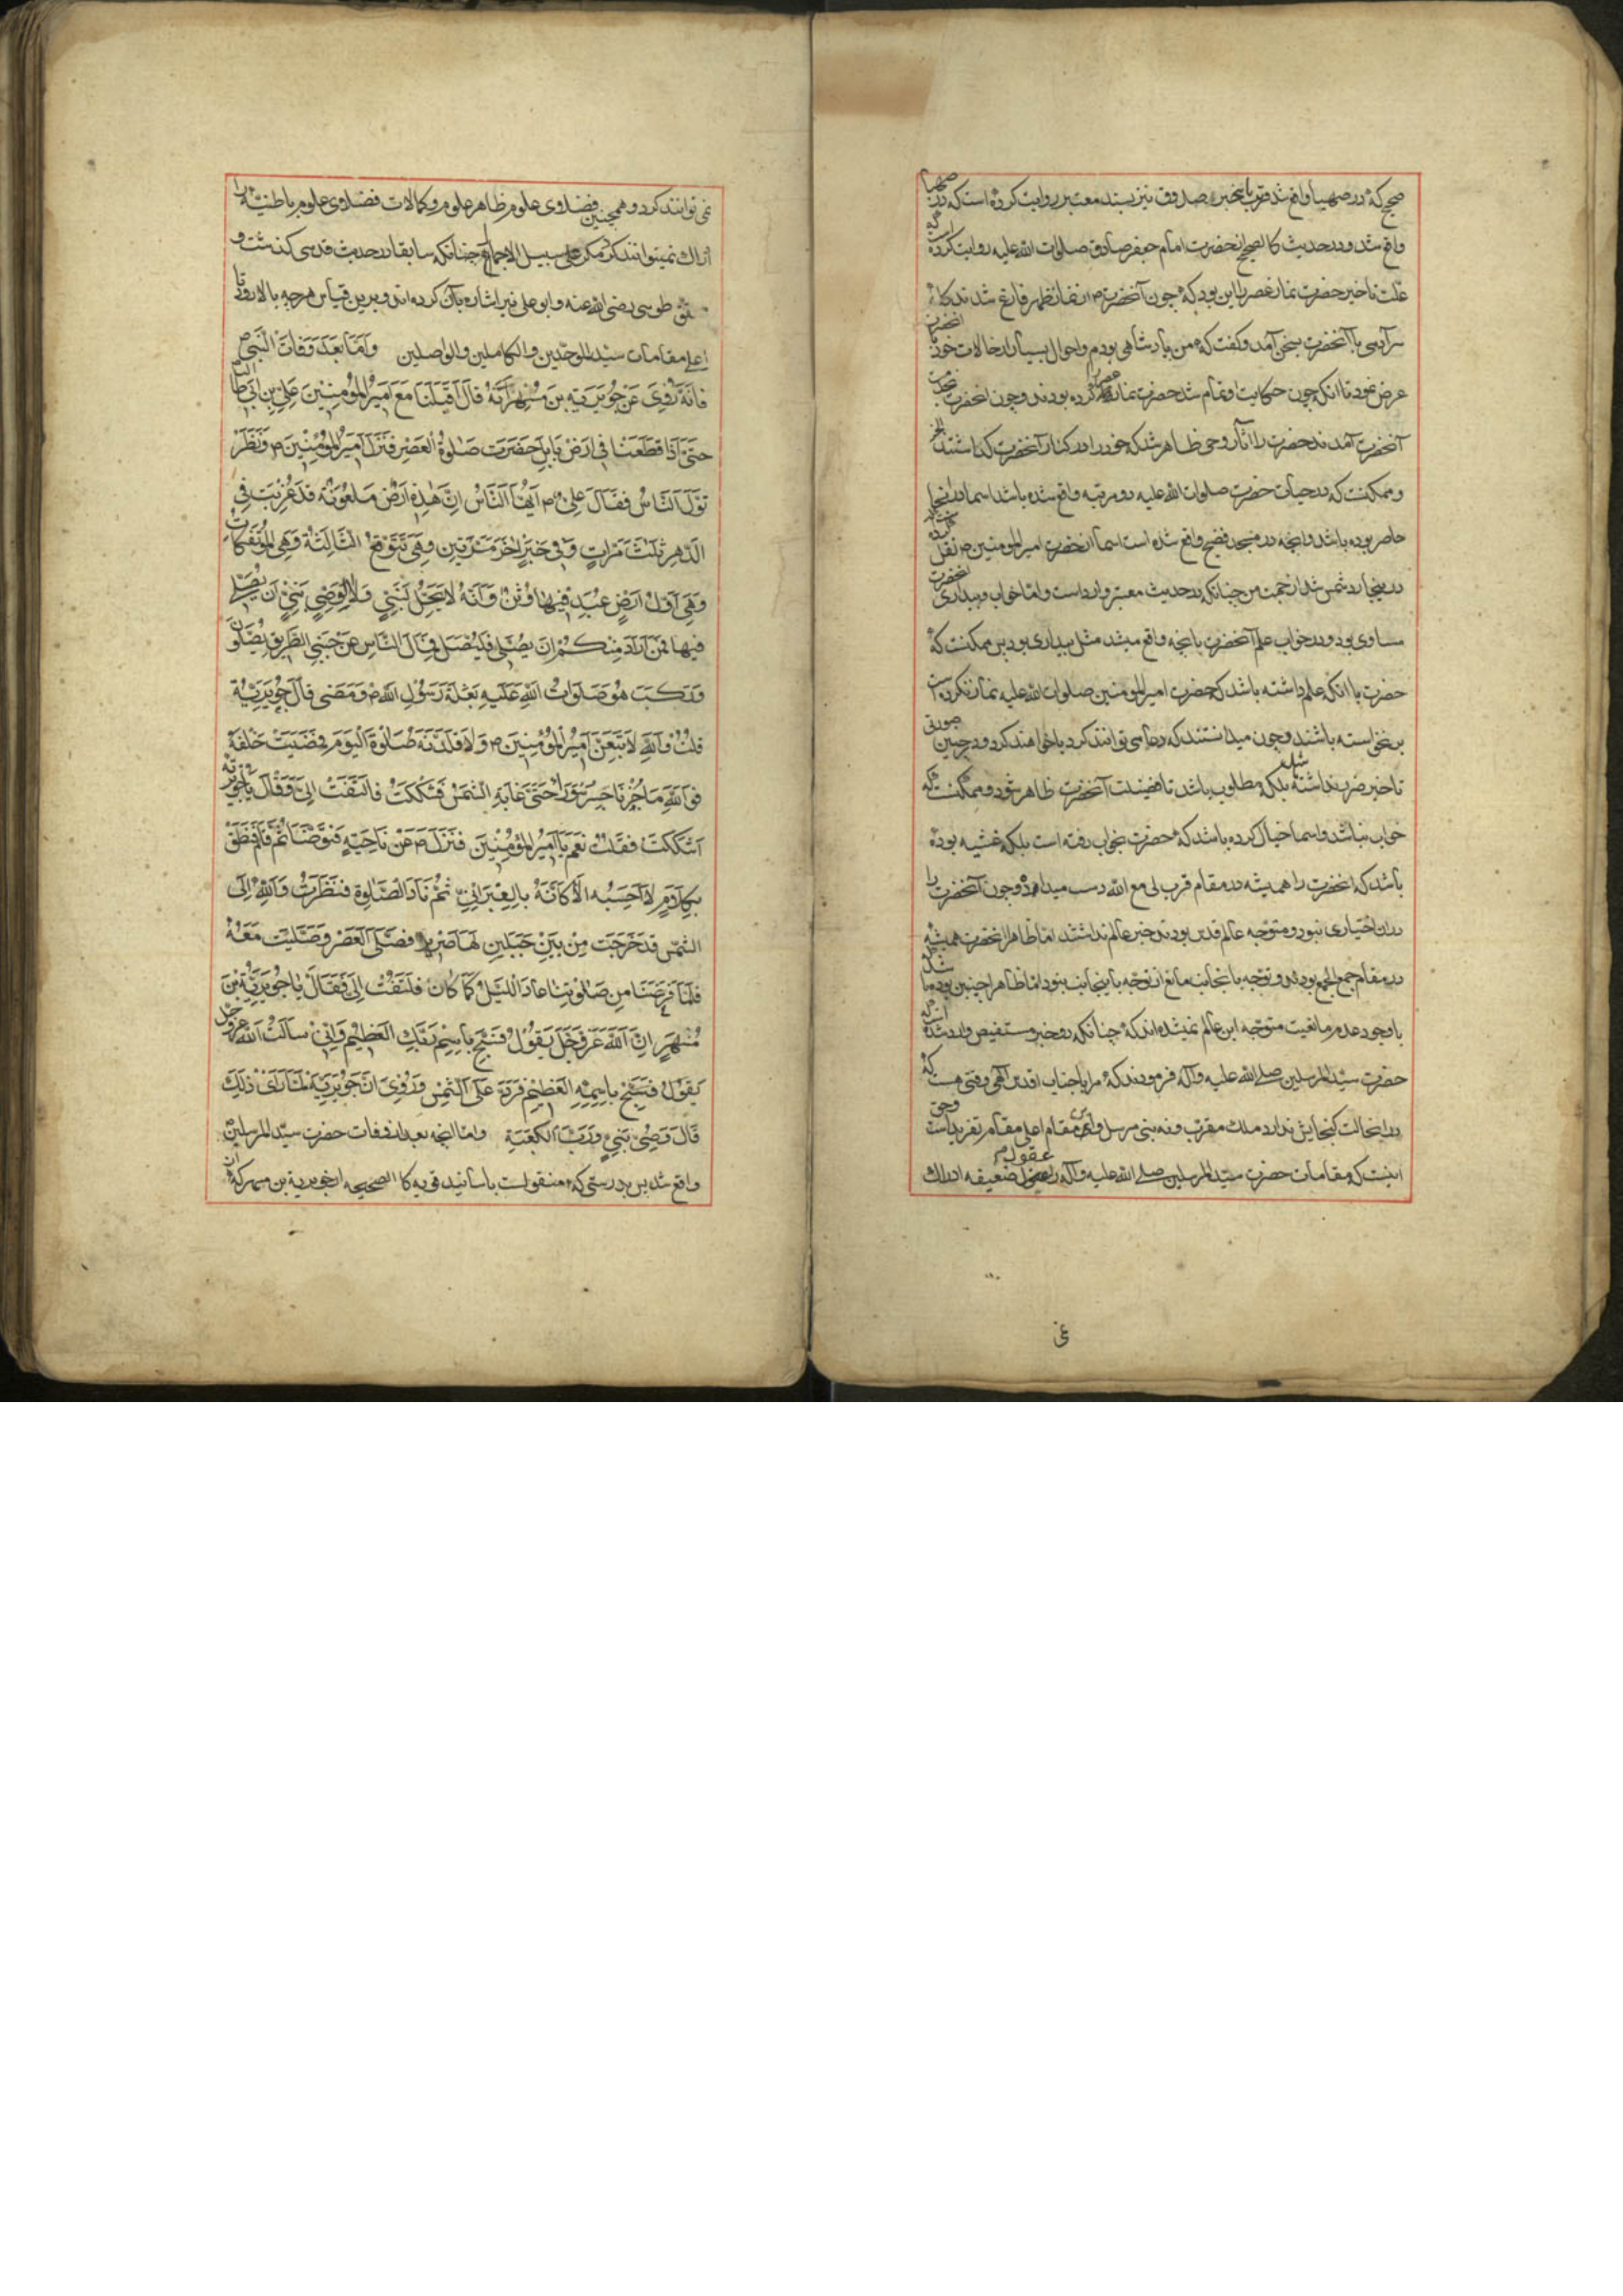 صحیح که در صهبا واقع شد قرب باین خبر و صدوق نیز بسند معتبر روایت کرده است که در صهبا
واقع شد و در حدیث کالصحیح از حضرت امام جعفر صادق صلوات الله علیه روایت کرده که
علت تاخیر حضرت نماز عصر را این بود که چون آنحضرت از نماز ظهر فارغ شدند کله
سر آدمی با آنحضرت بسخن آمد و گفت که من پادشاهی بودم و احوال بسیار از حالات خود بآنحضرت
عرض نمود تا آنکه چون حکایت او تمام شد حضرت نماز عصر کرده بودند و چون آنحضرت بخدمت
آنحضرت آمدند حضرت را آثار وحی ظاهر شد که خود را در کنار آنحضرت گذاشتند الخ
و ممکنست که در حیات حضرت صلوات الله علیه دو مرتبه واقع شده باشد اسما در آنجا
حاضر بوده باشد و آنچه در مسجد فضیح واقع شده است اسما از حضرت امیرالمومنین نقل کرده باشد
در بیجا رد شمس شد از جهت من چنانکه در حدیث معتبر وارد است و اما خواب و بیداری آنحضرت
مساوی بود و در خواب علم آنحضرت بآنچه واقع میشد مثل بیداری بود پس ممکنست که
حضرت با آنکه علم داشته باشد که حضرت امیرالمومنین صلوات الله علیه نماز نکرده است
بر نخواسته باشند و چون میدانستند که دعا می توانند کرد یا خواهند کرد و در چنین صورتی
تاخیر ضرر نداشته بلکه مطلوب باشد تا فضیلت آنحضرت ظاهر شود و ممکنست که
خواب نباشد و اسما خیال کرده باشد که حضرت بخواب رفته است بلکه غشیه بوده
باشد که آنحضرت را همیشه در مقام قرب لی مع الله دست میداد و چون آنحضرت را
در آن اختیاری نبود و متوجه عالم قدس بودند خبر عالم نداشتند اما ظاهرا آنحضرت همیشه
در مقام جمع الجمع بودند و توجه بآنجانب مانع از توجه باینجانب نبود اما ظاهرا چنین بود
با وجود عدم مانعیت متوجه این عالم نمیشده اند که چنانکه در خبر مستفیض وارد شده است که
حضرت سید المرسلین صلی الله علیه و آله فرمودند که مرا با جناب اقدس الهی وقتی هست که
در آنحالت گنجایش ندارد ملک مقرب و نه نبی مرسل و این مقام اعلی مقام تفرید است و حق
اینست که مقامات حضرت سید المرسلین صلی الله علیه و آله را عقول ضعیفه ادراک
نمی توانند کرد و همچنین فضلاوی علوم ظاهر علوم و کمالات فضلاوی علوم باطنیه را
ادراک نمیتوانند کرد مگر علی سبیل الاجمال چنانکه سابقا در حدیث قدسی گذشت و
طوسی رضی الله عنه و ابو علی نیز اشاره بآن کرده اند و برین قیاس هر چه بالا روی تا
اعلی مقامات سید الموحدین و الکاملین و الواصلین وَاَمّا بَعدَ وَفاتِ النَّبیِّ
فَاِنَّهُ رُوِیَ عَن جُوَیریَةِ بنِ مُسهِرٍ اَنَّهُ قالَ اَقبَلنا مَعَ اَمیرِ المُؤمِنینَ عَلِیِّ بنِ اَبی طالب
حَتّی اِذا قَطَعنا فی اَرضِ بابِلَ حَضَرَت صَلوةُ العَصرِ فَنَزَلَ اَمیرُ المُؤمِنینَ وَنَزَلَ
النّاسُ فَقالَ عَلِیٌّ اَیُّهَا النّاسُ اِنَّ هذِهِ اَرضٌ مَلعُونَةٌ قَد عُذِّبَت فِی
الدَّهرِ ثَلثَ مَرّاتٍ وَفی خَبَرٍ اخَرَ مَرَّتَینِ وَهِیَ تَتَوَقَّعُ الثّالِثَةَ وَهِیَ المُؤتَفِکات
وَهِیَ اَوَّلُ اَرضٍ عُبِدَ فیها وَثَنٌ وَاَنَّهُ لا یَحِلُّ لِنَبِیٍّ وَلا لِوَصِیِّ نَبِیٍّ اَن یُصَلِّیَ
فیها فَمَن اَرادَ مِنکُم اَن یُصَلِّیَ فَلیُصَلِّ فَمالَ النّاسُ عَن جَنبَیِ الطَّریقِ یُصَلُّونَ
وَرَکِبَ هُوَ صَلَواتُ اللهِ عَلَیهِ بَغلَةَ رَسُولِ اللهِ وَمَضی قالَ جُوَیریَةُ
قُلتُ وَاللهِ لَاَتبَعَنَّ اَمیرَ المُؤمِنینَ وَلَاُقَلِّدَنَّهُ صَلوةَ الیَومَ فَمَضَیتُ خَلفَهُ
فَوَاللهِ ما جُزنا جِسرَ سُوراءَ حَتّی غابَةِ الشَّمسُ فَشَکَکتُ فَالتَفَتَ اِلَیَّ وَقالَ یا جُویریَة
اَشَکَکتَ فَقُلتُ نَعَم یا اَمیرَ المُؤمِنینَ فَنَزَلَ عَن ناحِیَةٍ فَتَوَضَّأَ ثُمَّ قامَ فَنَطَقَ
بِکَلامٍ لا اَحسَبُه اِلّا کَاَنَّهُ بِالعِبرانِیِّ ثُمَّ نادَ الصَّلوةَ فَنَظَرتُ وَاللهِ اِلَی
الشَّمسِ قَد خَرَجَت مِن بَینِ جَبَلَینِ لَها صَریر فَصَلَّی العَصرَ وَصَلَّیتُ مَعَهُ
فَلَمّا فَرَغنا مِن صَلوتِنا عادَ اللَّیلُ کَما کانَ فَالتَفَتَ اِلَیَّ فَقالَ یا جُوَیریَةَ بنَ
مُسهِرٍ اِنَّ اللهَ عَزَّوَجَلَّ یَقُولُ فَسَبِّح بِاسمِ رَبِّکَ العَظیمِ وَاِنّی سَاَلتُ اللهَ عَزَّوَجَلَّ
یَقُولُ فَسَبِّح بِاسمِهِ العَظیمِ فَرَدَّ عَلَیَّ الشَّمسَ وَرُوِیَ اَنَّ جُوَیریَةَ لَمّا رَای ذلِکَ
قالَ وَصِیُّ نَبِیٍّ وَرَبِّ الکَعبَةِ و اما آنچه بعد از وفات حضرت سید المرسلین
واقع شد پس بدرستی که منقولست باسانید قویه کالصحیحه از جویریة بن مسهر که
نمی